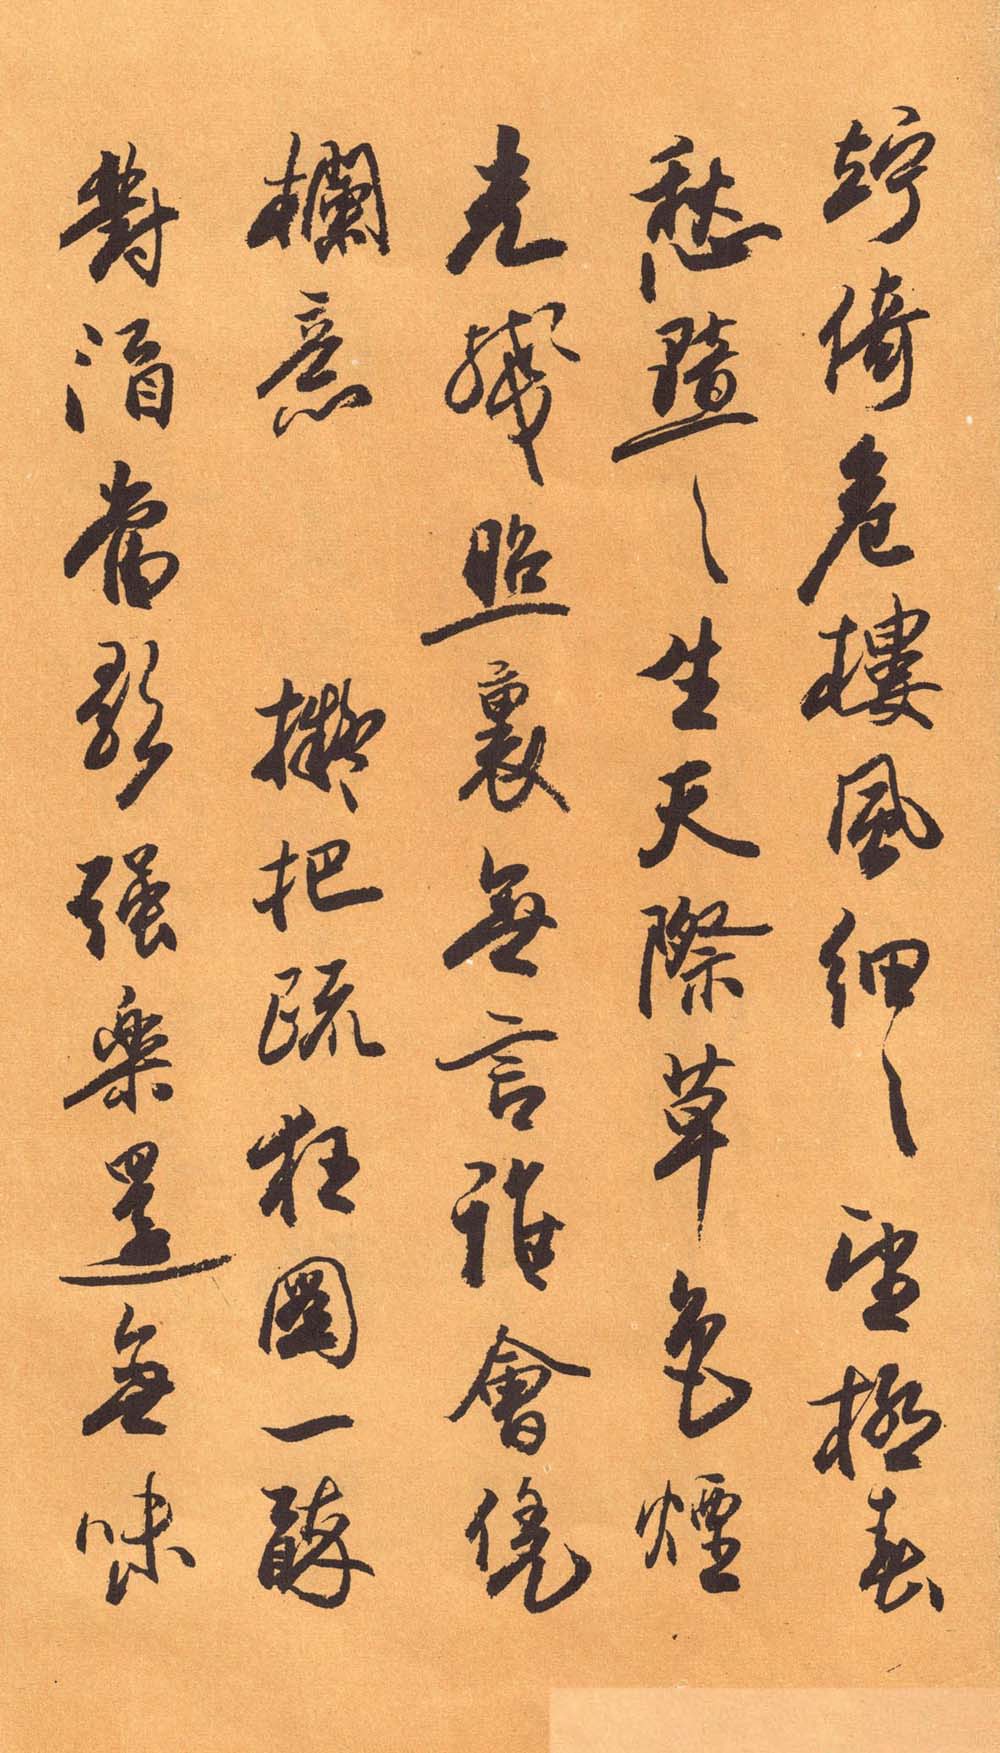 竚倚危樓風細〻望極春
愁黯〻生天際草色煙
光殘照裏無言誰會凭
欄意　擬把疏狂圖一醉
對酒當歌強樂還無味